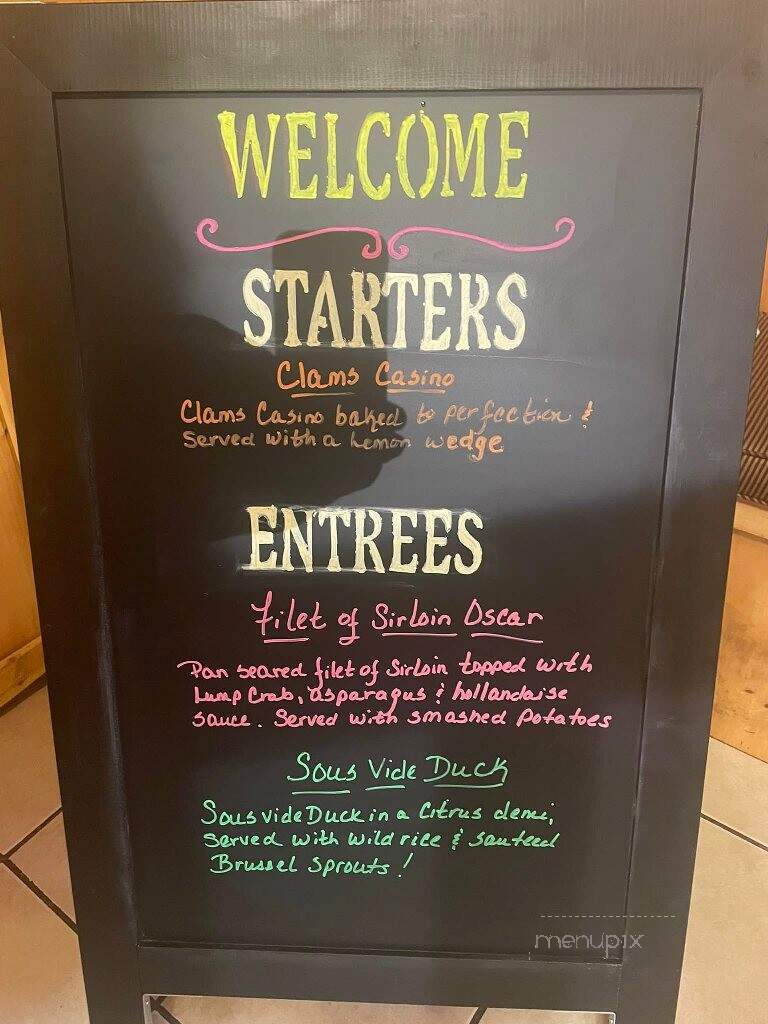 WELCOME
STARTERS
Clams Casino
Clams Casino baked to perfection &
Served with a Lemon wedge
ENTREES
Filet of Sirloin Oscar
Pan seared filet of Sirloin topped with
Lump Crab, asparagus & hollandaise
sauce. Served with smashed Potatoes
Sous Vide Duck
Sous vide Duck in a Citrus demi,
Served with Wild rice & Sauteed
Brussel Sprouts!
menupix